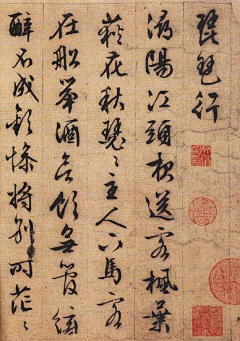 琵琶行
潯陽江頭夜送客楓葉
荻花秋瑟〻主人下馬客
在船舉酒欲飲無管絃
醉不成歡慘將別時茫〻